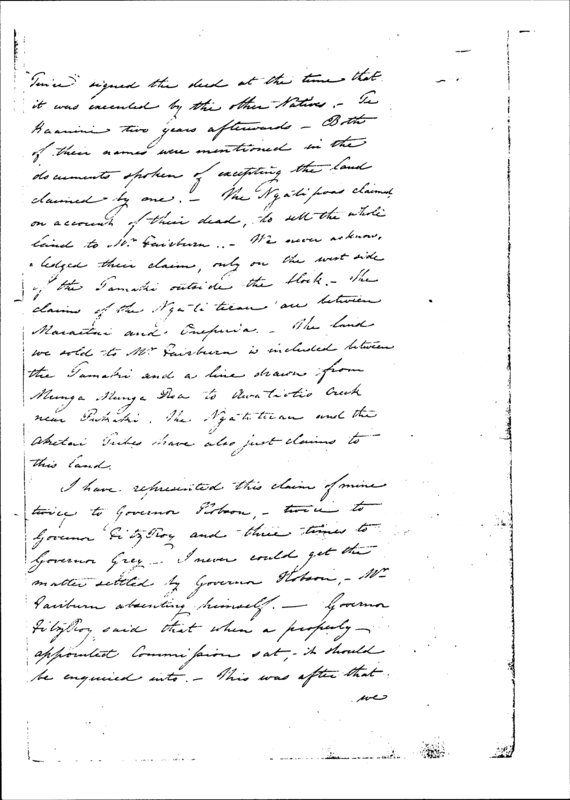 signed the deed at the time that
it was executed by the other Natives. - Te
Kaanini two years afterwards - Both
of their names were mentioned in the
documents spoken of excepting the land
claimed by one. - The Ngatipoas claimed,
on account of their dead, to sell the whole
land to Mr Fairburn. - We never acknow,
ledged their claim, only on the west side
of the Tamaki outside the block. - The
claims of the Ngatiteran are between
Maraetai and - The land
we sold to Mr Fairburn is included between
the Tamaki and a line drawn from
Munga Munga Roa to Creek
near Pukaki. The Ngatiteran and the
Akitai Tribes have also just claims to
this land.
I have represented this claim of mine
twice to Governor Hobson, - twice to
Governor FitzRoy and three times to
Governor Grey - I never could get the
matter settled by Governor Hobson, - Mr
Fairburn absenting himself. - Governor
FitzRoy said that when a properly
appointed Commission sat, - it should
be enquired into. - This was after that
we